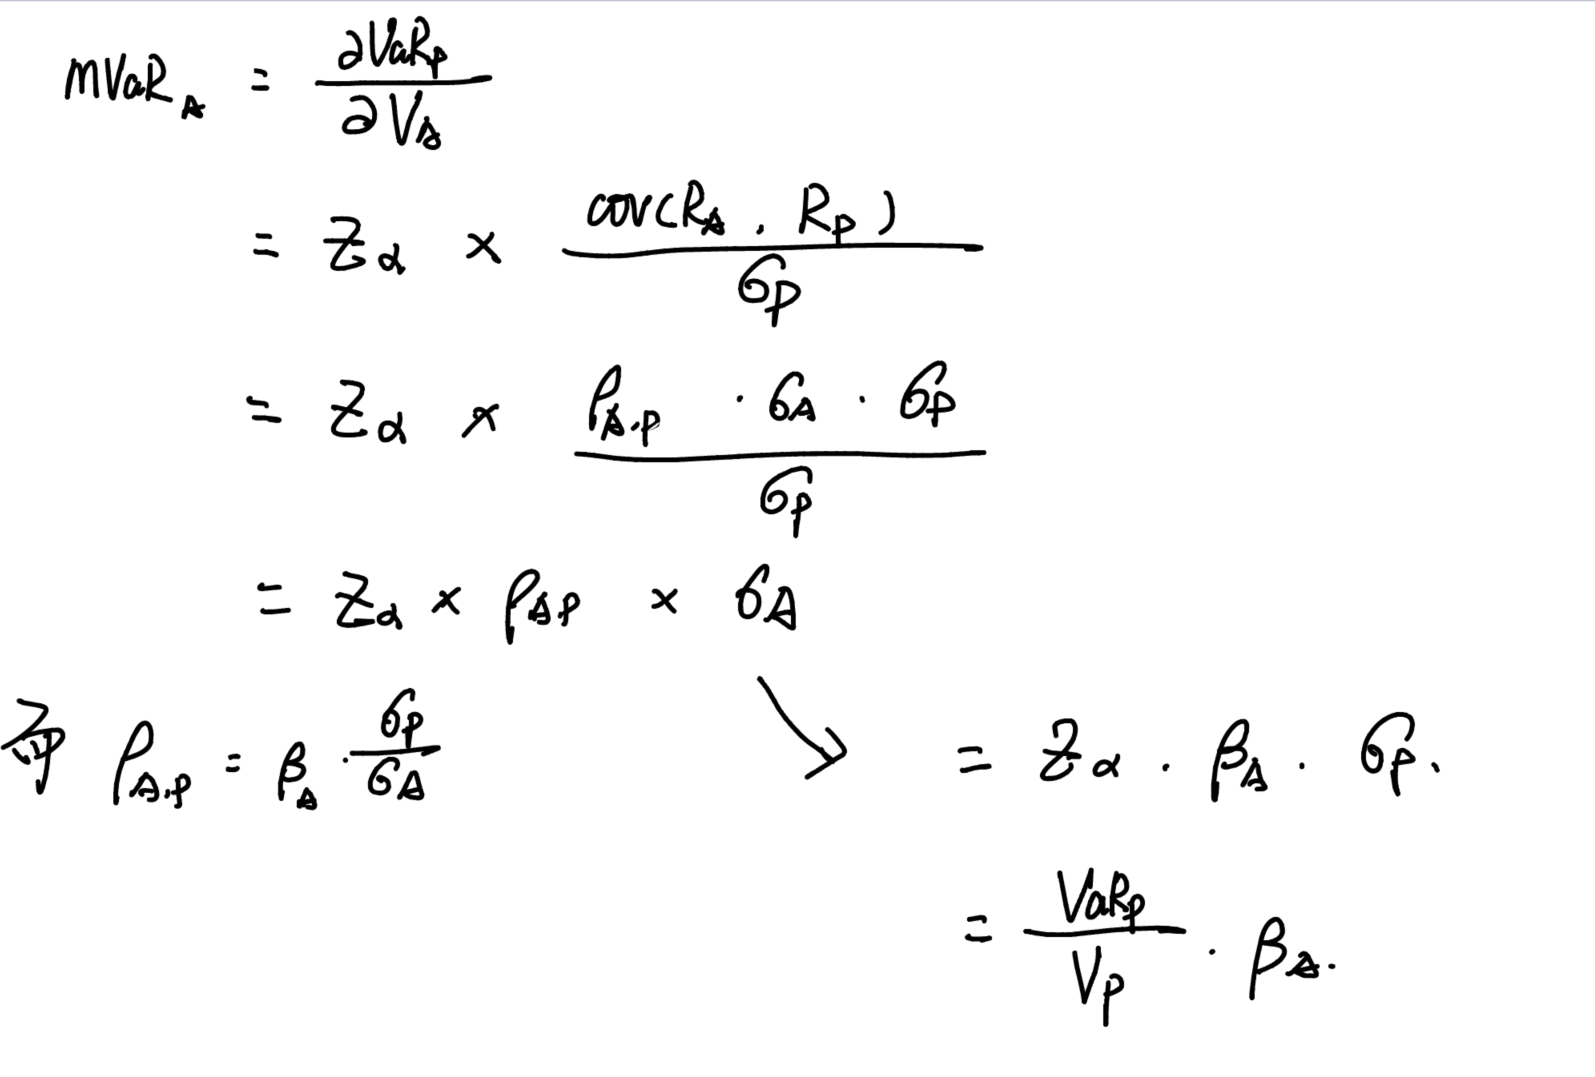 mVaR_A = ∂VaR_P / ∂V_A
= Z_α × cov(R_A, R_P) / σ_P
= Z_α × ρ_A,P · σ_A · σ_P / σ_P
= Z_α × ρ_A,P × σ_A
ρ_A,P = β_A · σ_P / σ_A
= Z_α · β_A · σ_P.
= VaR_P / V_P · β_A.